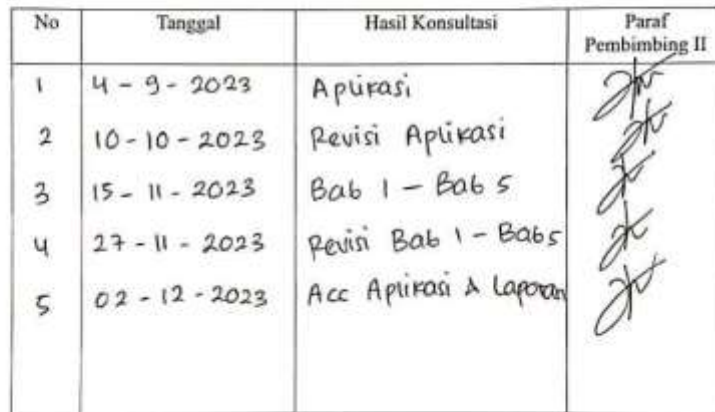 No Tanggal Hasil Konsultasi Paraf
Pembimbing II
1 4 - 9 - 2023 Aplikasi
2 10 - 10 - 2023 Revisi Aplikasi
3 15 - 11 - 2023 Bab 1 - Bab 5
4 27 - 11 - 2023 Revisi Bab 1 - Bab 5
5 02 - 12 - 2023 Acc Aplikasi & Laporan